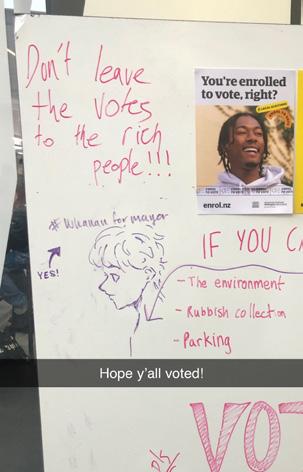 Don't leave
the votes
to the rich
people!!!
You're enrolled
to vote, right?
enrol.nz
YES!
IF YOU CA
- The environment
- Rubbish collection
- Parking
Hope y'all voted!
VOT